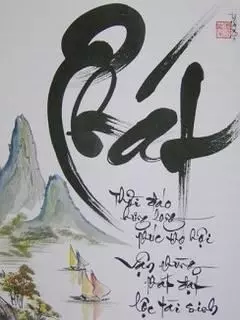 Thời đáo
hưng long
phúc thọ hội
Vận thông
phát đạt
lộc tài sinh